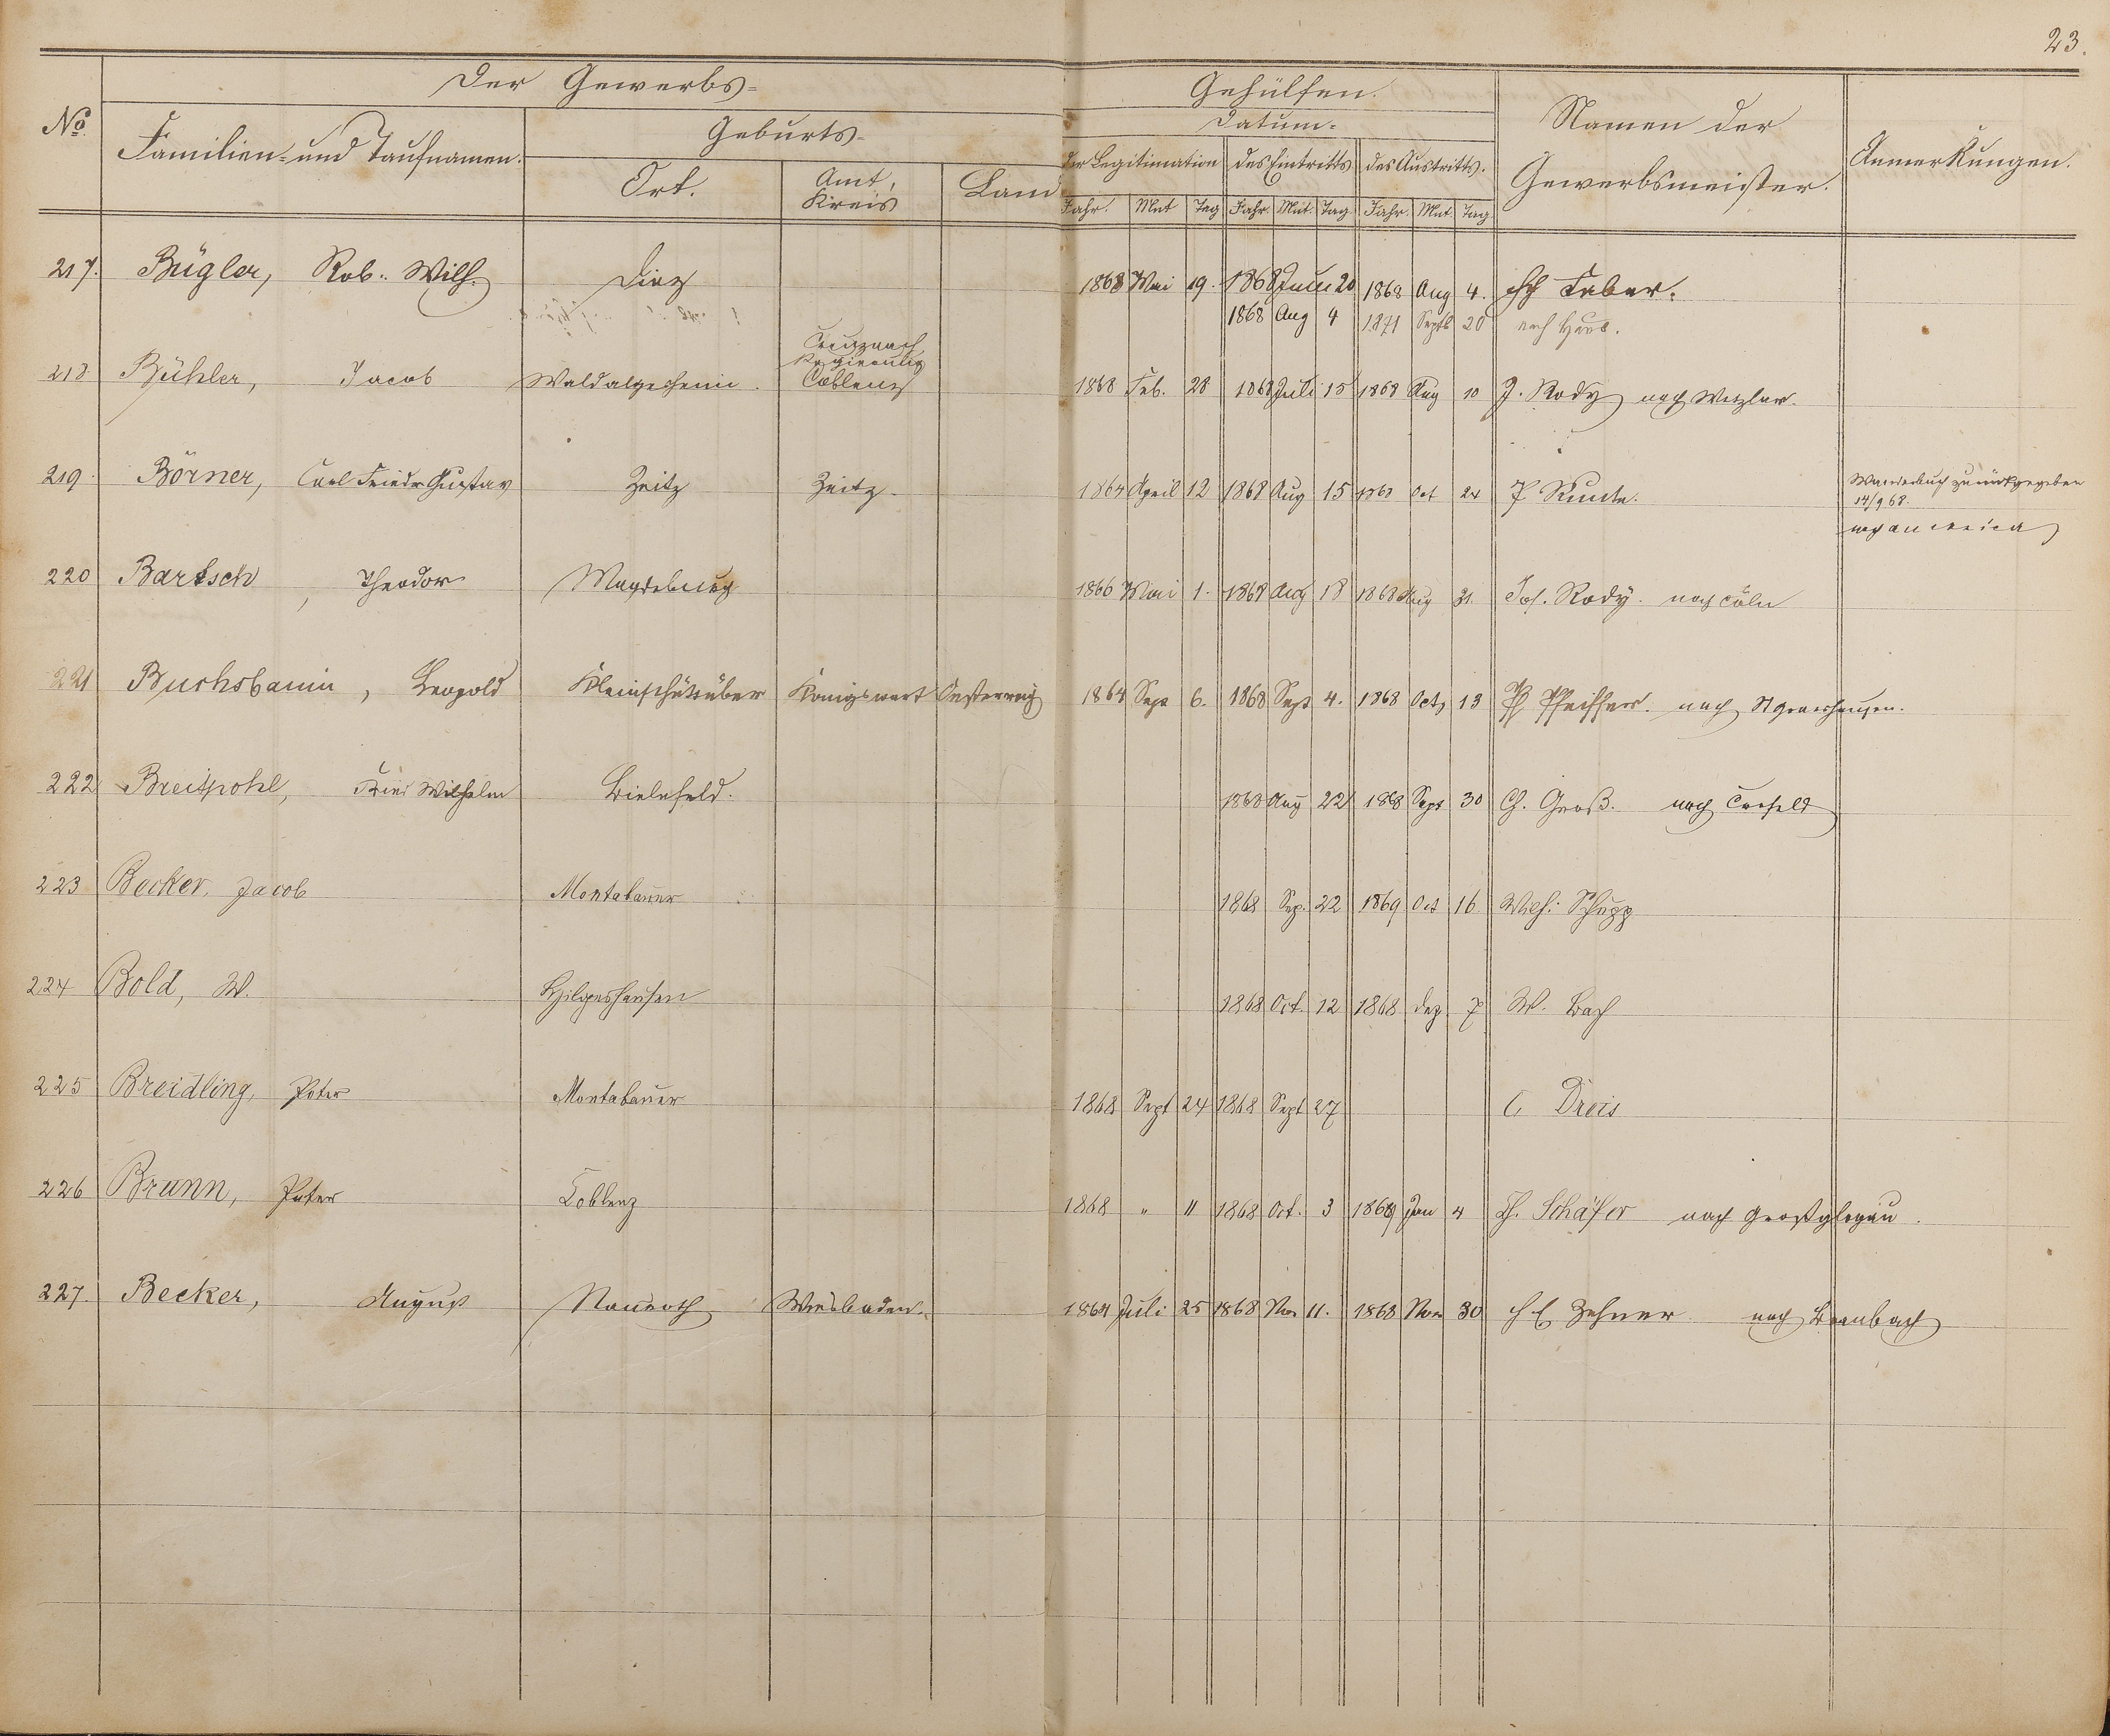 23.
Der Gewerbs= Gehülfen.
No. Familien- und Taufnamen. Geburts- Datum- Namen der Gewerbsmeister. Anmerkungen.
Ort. Amt, Kreis Land der Legitimation des Eintritts des Austritts.
Jahr. Mnt Tag Jahr. Mnt. Tag Jahr. Mnt Tag
217. Bügler, Rob. Wilh. Diez 1868 Mai 19. 1868 Juni 20 1868 Aug 4. Faber.
1868 Aug 4 1871 Septb 20
Creuznach
Regierung
218 Bühler, Jacob Waldalgesheim. Coblenz 1868 Feb. 28 1868 Juli 15 1868 Aug 10 J. Rody nach Wetzlar.
219. Börner, Carl Friedr Gustav Zeitz Zeitz. 1864 April 12 1868 Aug 15 1868 Oct 24 Wanderbuch zurückgegeben
14/9 68.
nach America
220 Bartsch, Theodor Magdeburg 1866 Mai 1. 1868 Aug 18 1868 Aug 31. Jos. Rody. nach Cöln
221 Buchsbaum, Leopold Königswart Oesterreich 1864 Sept 6. 1868 Sept 4. 1868 Oct 13 Pfeiffer. nach St Goarshausen.
222 Breitpohl, Fried Wilhelm Bielefeld. 1868 Aug 22 1868 Sept 30 Ch. Groß. nach Crefeld
223 Becker, Jacob Montabaur 1868 Sep. 22 1869 Oct 16 Wilh: Schupp
224 Bold, W. 1868 Oct. 12 1868 Dez 7 W. Bach
225 Breidling, Peter Montabaur 1868 Sept 24 1868 Sept 27 C. Dreis
226 Brunn, Peter Coblenz 1868 " 11 1868 Oct. 3 1869 Jan 4 Schäfer nach Großglogau.
227. Becker, August Nauroth Wiesbaden. 1864 Juli 25 1868 Nov 11. 1868 Nov 30 Zehner nach Braubach